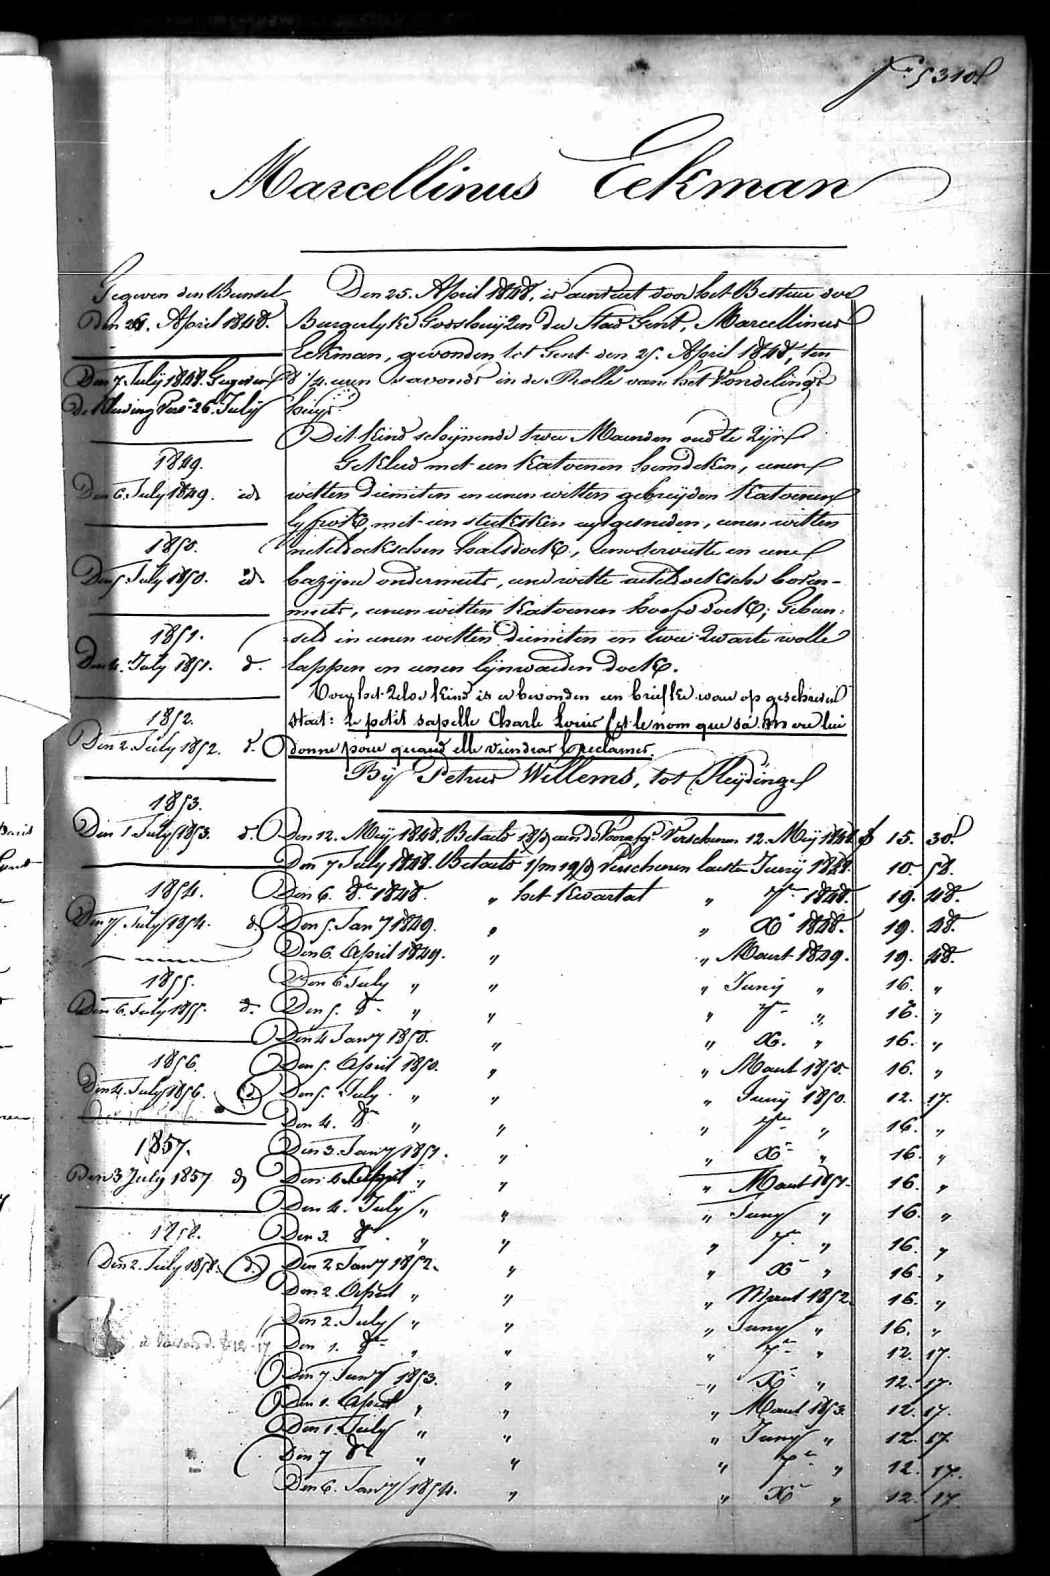 Marcellinus Eekman
Gegeven den Bunsel
Den 26. April 1848.
Den 7 July 1848. Gegeven
de Kleeding 26. July
1849.
Den 6. July 1849. id
1850.
Den 5 July 1850. id
1851.
Den 4. July 1851. d.
1852.
Den 2. July 1852. d.
1853.
Den 1. July 1853. d.
1854.
Den 7 July 1854. d
1855.
Den 6. July 1855. d.
1856.
Den 4. July 1856. d
1857.
Den 3 July 1857 d
1858.
Den 2. July 1858. d.
Den 25. April 1848, is aenveert door het Bestuer der
Burgerlyke Godshuyzen der Stad Gent, Marcellinus
Eekman, gevonden tot Gent den 25. April 1848, ten
8 1/4 uren s'avonds in de Rolle van het Vondelings
huys
Dit kind schynende twee Maenden oud te zyn
Gekleed met een katoenen hemdeken, eenen
witten diemiten en eenen witten gebreyden katoenen
lyfrok, met een stuksken uytgesneden, eenen witten
neteldoekschen halsdoek, eene serviette en eene
bazyne ondermuts, eene witte neteldoeksche boven-
muts, eenen witten katoenen hoofddoek; Gebun-
seld in eenen witten diemiten en twee zwarte wolle
lappen en eenen lynwaeden doek.
Voorts het zelve kind is er bevonden een briefke waer op geschreven
staet: Le petit sapelle Charle Louis C'est le nom que sa mere lui
donne pour quand elle viendras le reclamer.
By Petrus Willems, tot Sleydinge
Den 12. Mey 1848 Betaeld 18/ aen de Verschenen 12. Mey 1848 f 15. 30
Den 7 July 1848. Betaeld Verschenen laetsten Juny 1848. 10. 58.
Den 6. 8er 1848. " het kwartael " 7er 1848. 19. 48.
Den 5. Jany 1849. " " Xr 1848. 19. 48.
Den 6. April 1849. " " Maert 1849. 19. 48.
Den 6 July " " " Juny " 16. "
Den 5. 8r " " " 7er " 16. "
Den 4 Jany 1850. " " Xr. " 16. "
Den 5. April 1850. " " Maert 1850. 16. "
Den 5. July " " " Juny 1850 12. 17.
Den 4. 8r " " " 7er " 16. "
Den 3. Jany 1851. " " Xr " 16. "
Den 4 April " " " Maert 1851. 16. "
Den 4. July " " " Juny " 16. "
Den 3. 8r " " " 7r " 16. "
Den 2 Jany 1852. " " Xr " 16. "
Den 2. April " " " Maert 1852. 16. "
Den 2. July " " " Juny " 16. "
Den 1. 8er " " 7er " 12. 17.
Den 7 Jany 1853. " " Xr " 12. 17.
Den 1. April " " " Maert 1853 12. 17.
Den 1. July " " " Juny " 12. 17.
Den 7 8r " " " 7r " 12. 17.
Den 6. Jany 1854. " " Xr " 12. 17